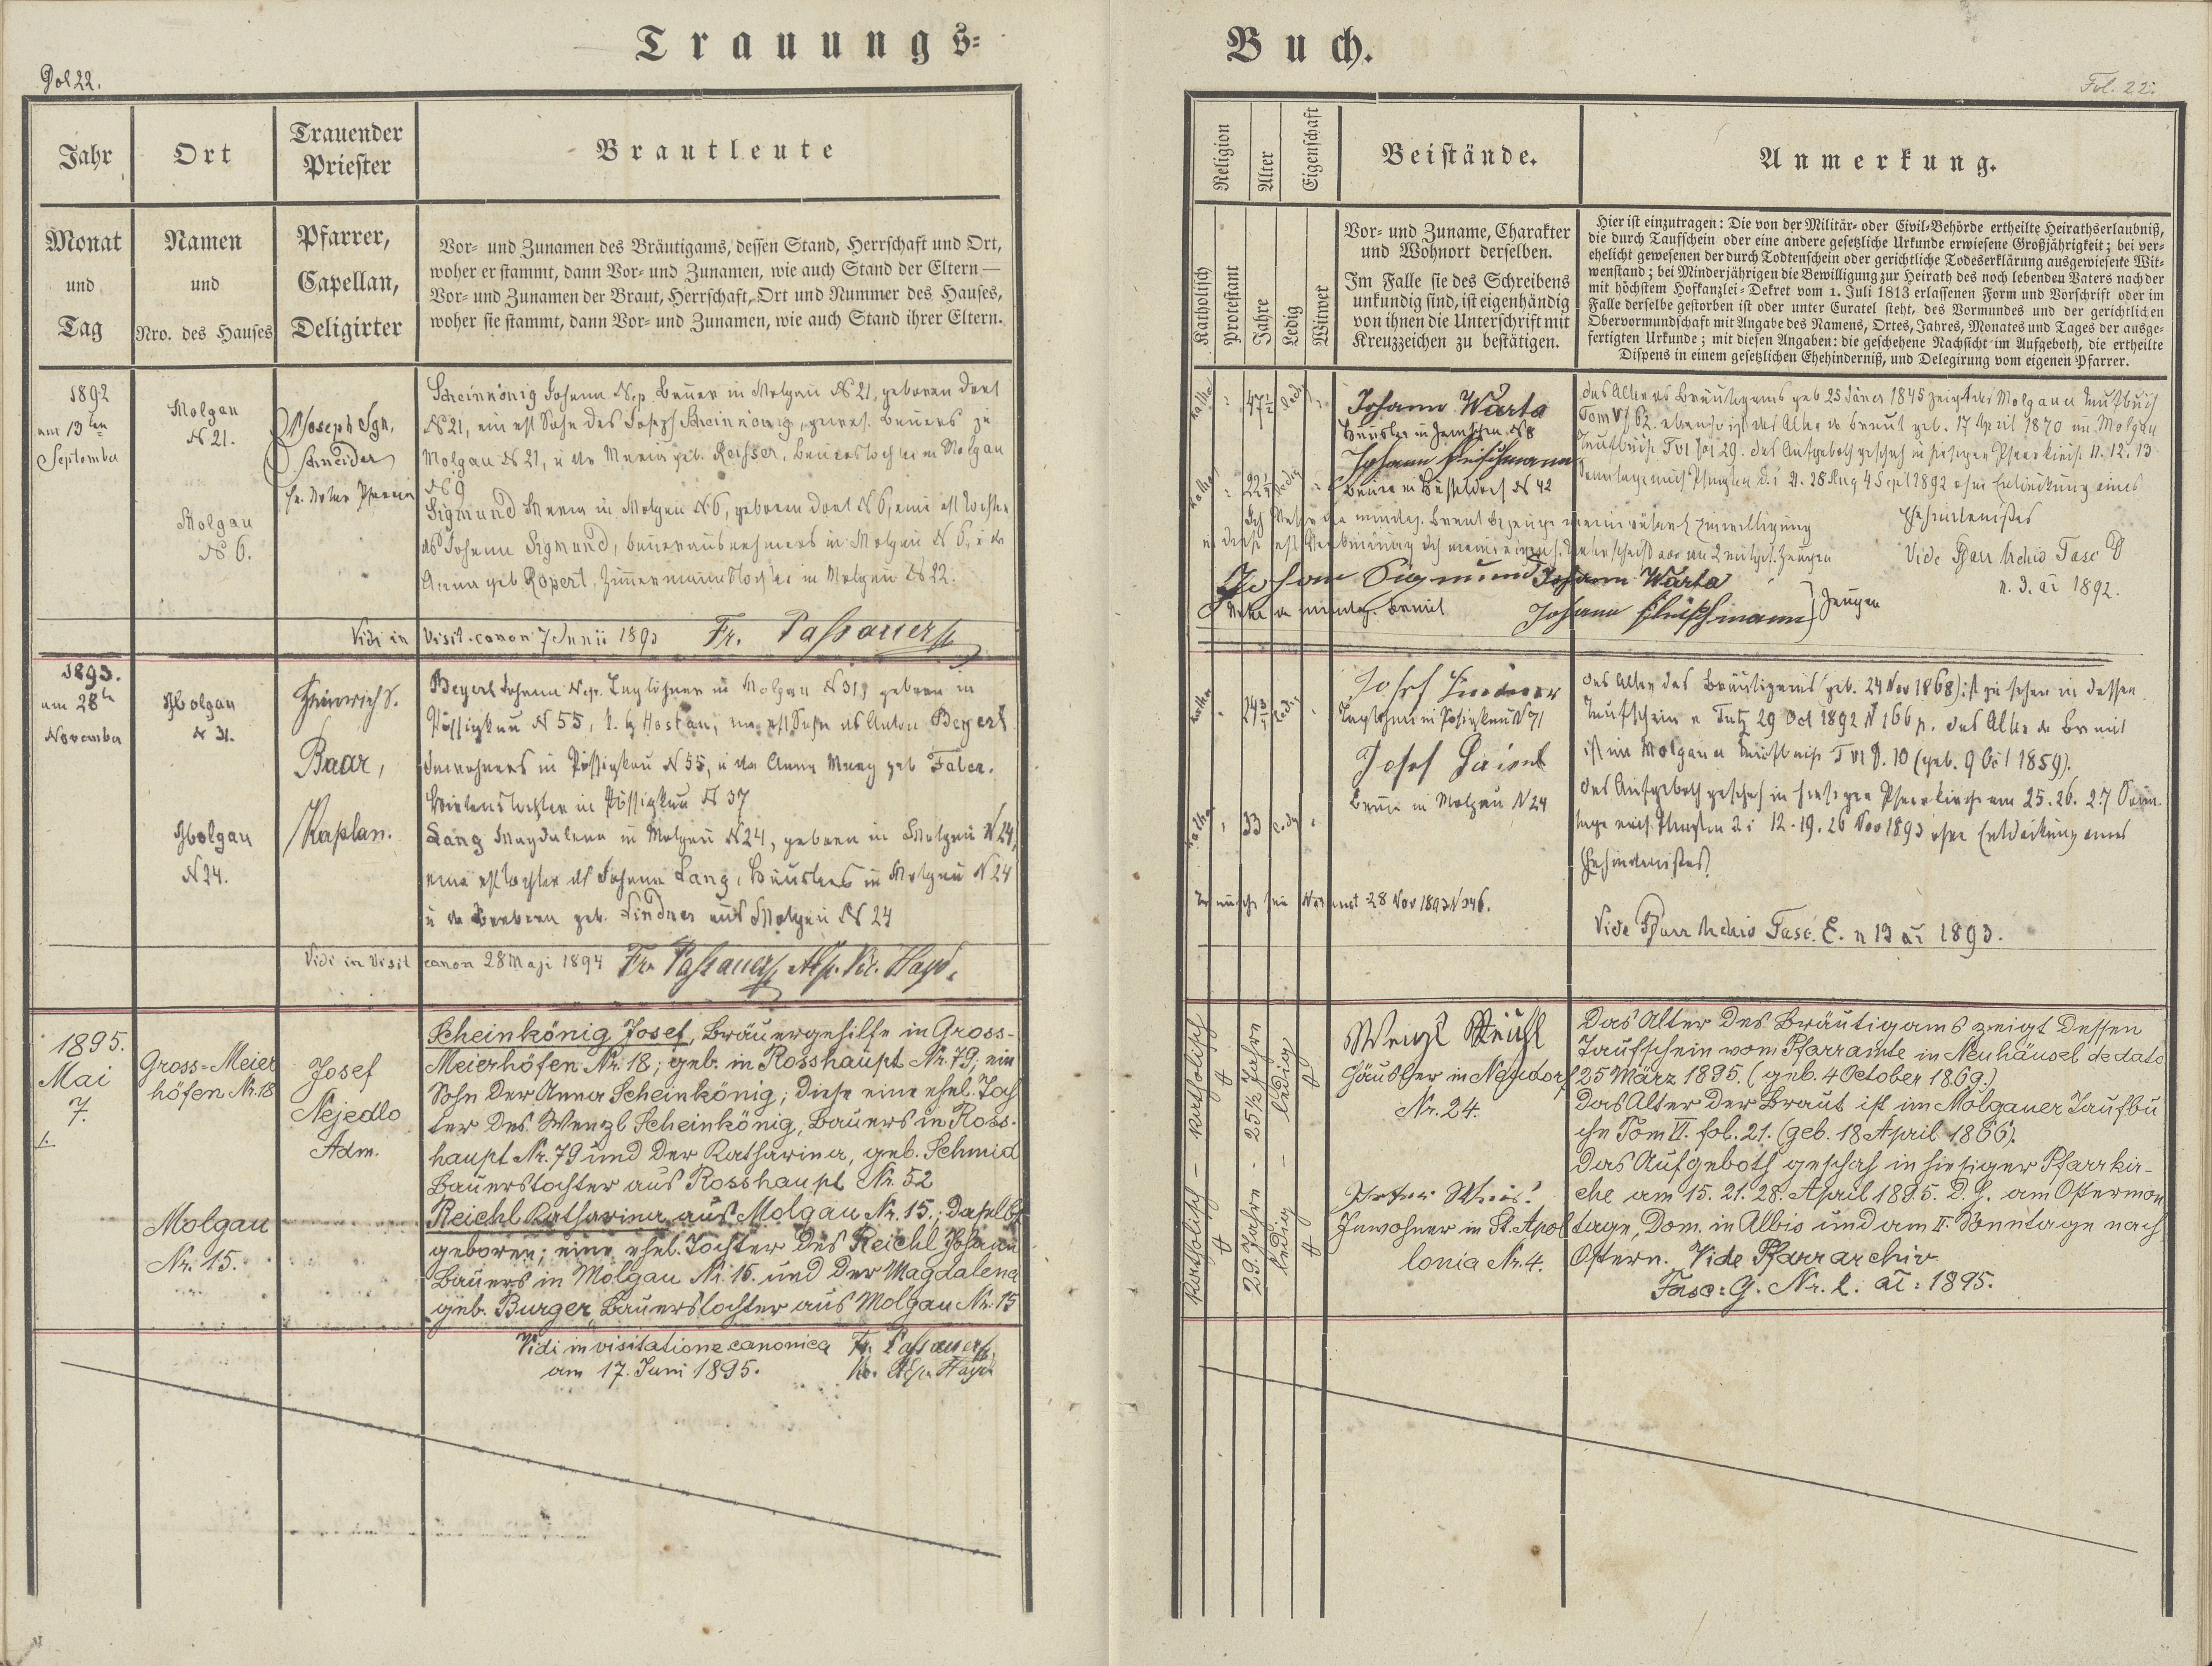 Trauungs-
Fol 22.
Jahr
Ort
Trauender
Priester
Brautleute
Monat
und
Tag
Namen
und
Nro. des Hauses
Pfarrer,
Capellan,
Deligirter
Vor- und Zunamen des Bräutigams, dessen Stand, Herrschaft und Ort,
woher er stammt, dann Vor- und Zunamen, wie auch Stand der Eltern —
Vor- und Zunamen der Braut, Herrschaft, Ort und Nummer des Hauses,
woher sie stammt, dann Vor- und Zunamen, wie auch Stand ihrer Eltern.
1892
am 13ten
September
Molgau
N 21.
Molgau
N 6.
P Joseph Ign.
Schneider
Scheinkönig Johann Nep. Bauer in Molgau N 21, geboren dort
N 21, ein ehl Sohn des Joseph Scheinkönig, gewes. Bauers zu
Molgau N 21, u der Maria geb. Reisser, Bauerstochter in Molgau
N 9
Sigmund Maria in Molgau N 6, geboren dort N 6, eine ehl Tochter
des Johann Sigmund, Bauerausnehmers in Molgau N 6, u der
Anna geb Ropert, Zimmermannstochter in Molgau N 22.
Vidi in Visit. canon 7 Junii 1893 Fr. Passauer
1893.
am 28te
November
Molgau
N 31.
Molgau
N 24.
Heinrich S.
Baar,
Kaplan.
Beyerl Johann Nep. Taglöhner in Molgau N 31, geboren in
Pössigkau N 55, b. h Hostau, ein ehl Sohn des Anton Beyerl
Inwohners in Pössigkau N 55, u der Anna Marg geb Faber.
Wirtenstochter in Pössigkau N 37
Lang Magdalena in Molgau N 24, geboren in Molgau N 24,
eine ehl Tochter des Johann Lang, Häuslers in Molgau N 24
u der Barbara geb. Lindner aus Molgau N 24
Vidi in Visit canon 28 Maji 1894 Fr. Passauer Bisch. Vic. Hayd.
1895.
Mai
7.
Gross-Meier
höfen Nr. 18
Molgau
Nr. 15.
Josef
Nejedlo
Adm.
Scheinkönig Josef, Bräuergehilfe in Gross-
Meierhöfen Nr. 18; geb. in Rosshaupt Nr. 79; ein
Sohn der Anna Scheinkönig; diese eine ehel. Toch
ter des Wenzl Scheinkönig, Bauers in Ross-
haupt Nr. 79 und der Katharina, geb. Schmid
Bauerstochter aus Rosshaupt Nr. 52
Reichl Katharina aus Molgau Nr. 15.; daselbst
geboren; eine ehel. Tochter des Reichl Johann
Bauers in Molgau Nr. 15. und der Magdalena
geb. Burger, Bauerstochter aus Molgau Nr. 15
Vidi in visitatione canonica Fr. Passauer
am 17. Juni 1895.
Buch.
Fol. 22.
Religion
Alter
Eigenschaft
Beistände.
Anmerkung.
Katholisch
Protestant
Jahre
Ledig
Witwer
Vor- und Zuname, Charakter
und Wohnort derselben.
Im Falle sie des Schreibens
unkundig sind, ist eigenhändig
von ihnen die Unterschrift mit
Kreuzzeichen zu bestätigen.
Hier ist einzutragen: Die von der Militär- oder Civil-Behörde ertheilte Heirathserlaubniß,
die durch Taufschein oder eine andere gesetzliche Urkunde erwiesene Großjährigkeit; bei ver-
ehelicht gewesenen der durch Todtenschein oder gerichtliche Todeserklärung ausgewiesene Wit-
wenstand; bei Minderjährigen die Bewilligung zur Heirath des noch lebenden Vaters nach der
mit höchstem Hofkanzlei-Dekret vom 1. Juli 1813 erlassenen Form und Vorschrift oder im
Falle derselbe gestorben ist oder unter Curatel steht, des Vormundes und der gerichtlichen
Obervormundschaft mit Angabe des Namens, Ortes, Jahres, Monates und Tages der ausge-
fertigten Urkunde; mit diesen Angaben: die geschehene Nachsicht im Aufgeboth, die ertheilte
Dispens in einem gesetzlichen Ehehinderniß, und Delegirung vom eigenen Pfarrer.
kathol
47½
led
Johann Warta
kathol
22½
ledig
Johann Fleischmann
Bauer in N 42
Das Alter des Bräutigams geb 25 Jäner 1845 zeigt das Molgauer Taufbuch
Tom VI 62. ebenso ist das Alter der Braut geb. 17 April 1870 im Molgau
Taufbuche T VI fol 29. das Aufgeboth geschah in hiesiger Pfarrkirche n. 12. 13
Sonntage nach Pfingsten d. i 21. 28 Aug 4 Sept 1892 ohne Entdeckung eines
Ehehindernißes
Vide Pfarr Archiv Fasc D
n. 3. ai 1892.
Johann Sigmund Johann Warta
Vater der minderj. Braut Johann Fleischmann Zeugen
kathol
24¾
ledig
Josef Lindner
Taglöhner in Pössigkau N 71
Josef
Bauer in Molgau N 24
kathol
33
ledig
Das Alter des Bräutigams (geb. 24 Nov 1868) ist zu sehen in dessen
Taufschein v. Tutz 29 Oct 1892 N 166 p. das Alter der Braut
ist im Molgauer Taufbuche T VI f. 10 (geb. 9 Oct 1859).
Das Aufgeboth geschah in hiesiger Pfarrkirche am 25. 26. 27 Sonn.
tage nach Pfingsten d i 12. 19. 26 Nov 1893 ohne Entdeckung eines
Ehehindernißes
28 Nov 1893 N 346.
Vide Pfarr Archiv Fasc. E. n 13 ai 1893.
Katholisch — katholisch
29. Jahre - 25½ Jahre
ledig — ledig
Wenzl Reichl
Häusler in Neudorf
Nr. 24.
Peter
Inwohner in St. Apol
lonia Nr. 4.
Das Alter des Bräutigams zeigt dessen
Taufschein vom Pfarramte in Neuhäusel de dato
25 März 1895. (geb. 4 October 1869.)
Das Alter der Braut ist im Molgauer Taufbu
che Tom VI. fol. 21. (geb. 18 April 1866).
Das Aufgeboth geschah in hiesiger Pfarrkir-
che am 15. 21. 28. April 1895. D. h. am Ostermon
tage, Dom. in Albis und am II. Sonntage nach
Ostern. Vide Pfarrarchiv
Fasc: G. Nr. 2. ai: 1895.